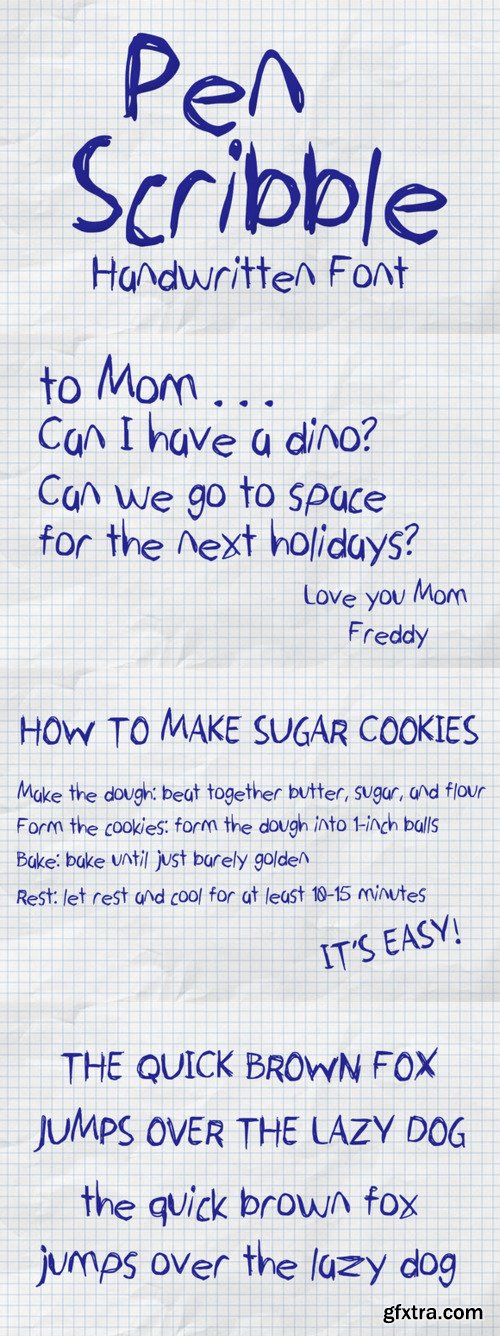 Pen
Scribble
Handwritten Font
to Mom . . .
Can I have a dino?
Can we go to space
for the next holidays?
Love you Mom
Freddy
HOW TO MAKE SUGAR COOKIES
Make the dough: beat together butter, sugar, and flour
Form the cookies: form the dough into 1-inch balls
Bake: bake until just barely golden
Rest: let rest and cool for at least 10-15 minutes
IT'S EASY!
THE QUICK BROWN FOX
JUMPS OVER THE LAZY DOG
the quick brown fox
jumps over the lazy dog
gfxtra.com